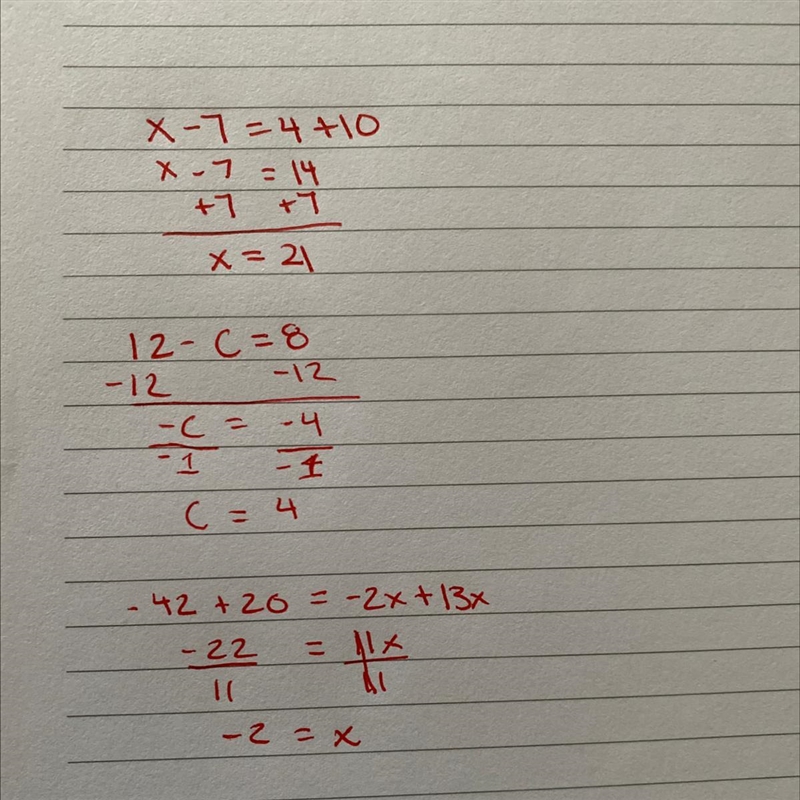 x - 7 = 4 + 10
x - 7 = 14
+7 +7
x = 21
12 - C = 8
-12 -12
-C = -4
-1 -1
C = 4
-42 + 20 = -2x + 13x
-22 = 11x
11 11
-2 = x